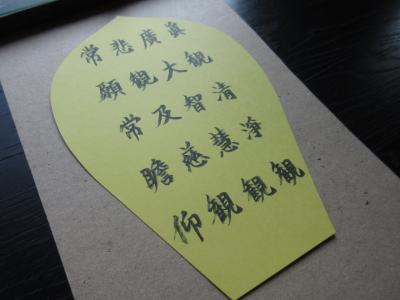 眞観清淨観
廣大智慧観
悲観及慈観
常願常瞻仰